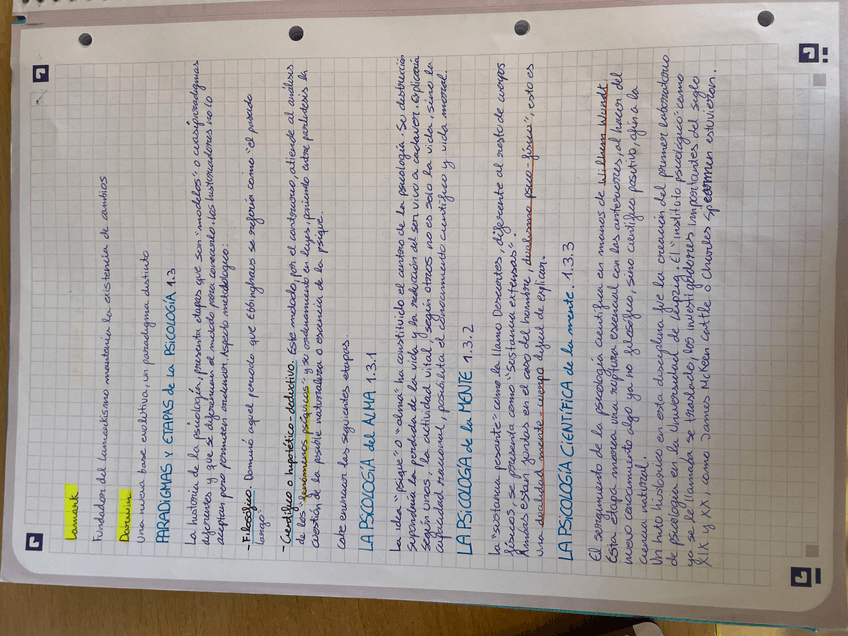 Lamark
Fundador del lamarkismo mantenía la existencia de cambios
Darwin
Una nueva base evolutiva, un paradigma distinto
PARADIGMAS y ETAPAS de la PSICOLOGÍA 1.3
La historia de la psicología, presenta etapas que son "modelos" o cuasiparadigmas
diferentes y que se diferencian el método para conocerlo. Los historiadores no lo
aceptan pero permiten ordenar. Aspecto metodológico:
- Filosófico. Dominó aquel periodo que Ebbinghaus se refería como "el pasado
largo".
- Científico o hipotético-deductivo. Este método, por el contrario, atiende al análisis
de los "fenómenos psíquicos" y su ordenamiento en leyes, poniendo entre paréntesis la
cuestión de la posible naturaleza o esencia de la psique.
Cabe enunciar las siguientes etapas.
LA PSICOLOGÍA del ALMA 1.3.1
La idea "psique" o "alma" ha constituido el centro de la psicología. Su destrucción
supondría la pérdida de la vida y la reducción del ser vivo a cadáver. Explicaría
según unos, la actividad vital, según otros no es solo la vida, sino la
capacidad racional, posibilita el conocimiento científico y vida moral.
LA PSICOLOGÍA de la MENTE 1.3.2
la "sustancia pensante" como la llamo Descartes, diferente al resto de cuerpos
físicos, se presenta como "sustancia extensas".
Ambas están juntas en el caso del hombre, dualismo psico-físico", esto es
una dualidad mente-cuerpo difícil de explicar.
LA PSICOLOGÍA CIENTÍFICA de la mente. 1.3.3
El surgimiento de la psicología científica en manos de Wilhem Wundt.
Esta etapa marca una ruptura esencial con las anteriores, al hacer del
nuevo conocimiento algo ya no filosófico, sino científico positivo, afín a la
ciencia natural.
Un hito histórico en esta disciplina fue la creación del primer laboratorio
de psicología en la Universidad de Leipzig; El "instituto psicológico" como
ya se le llamaba se trasladó, los investigadores importantes del siglo
XIX y XX, como James McKeen catlle o Charles Spearmen estuvieron.